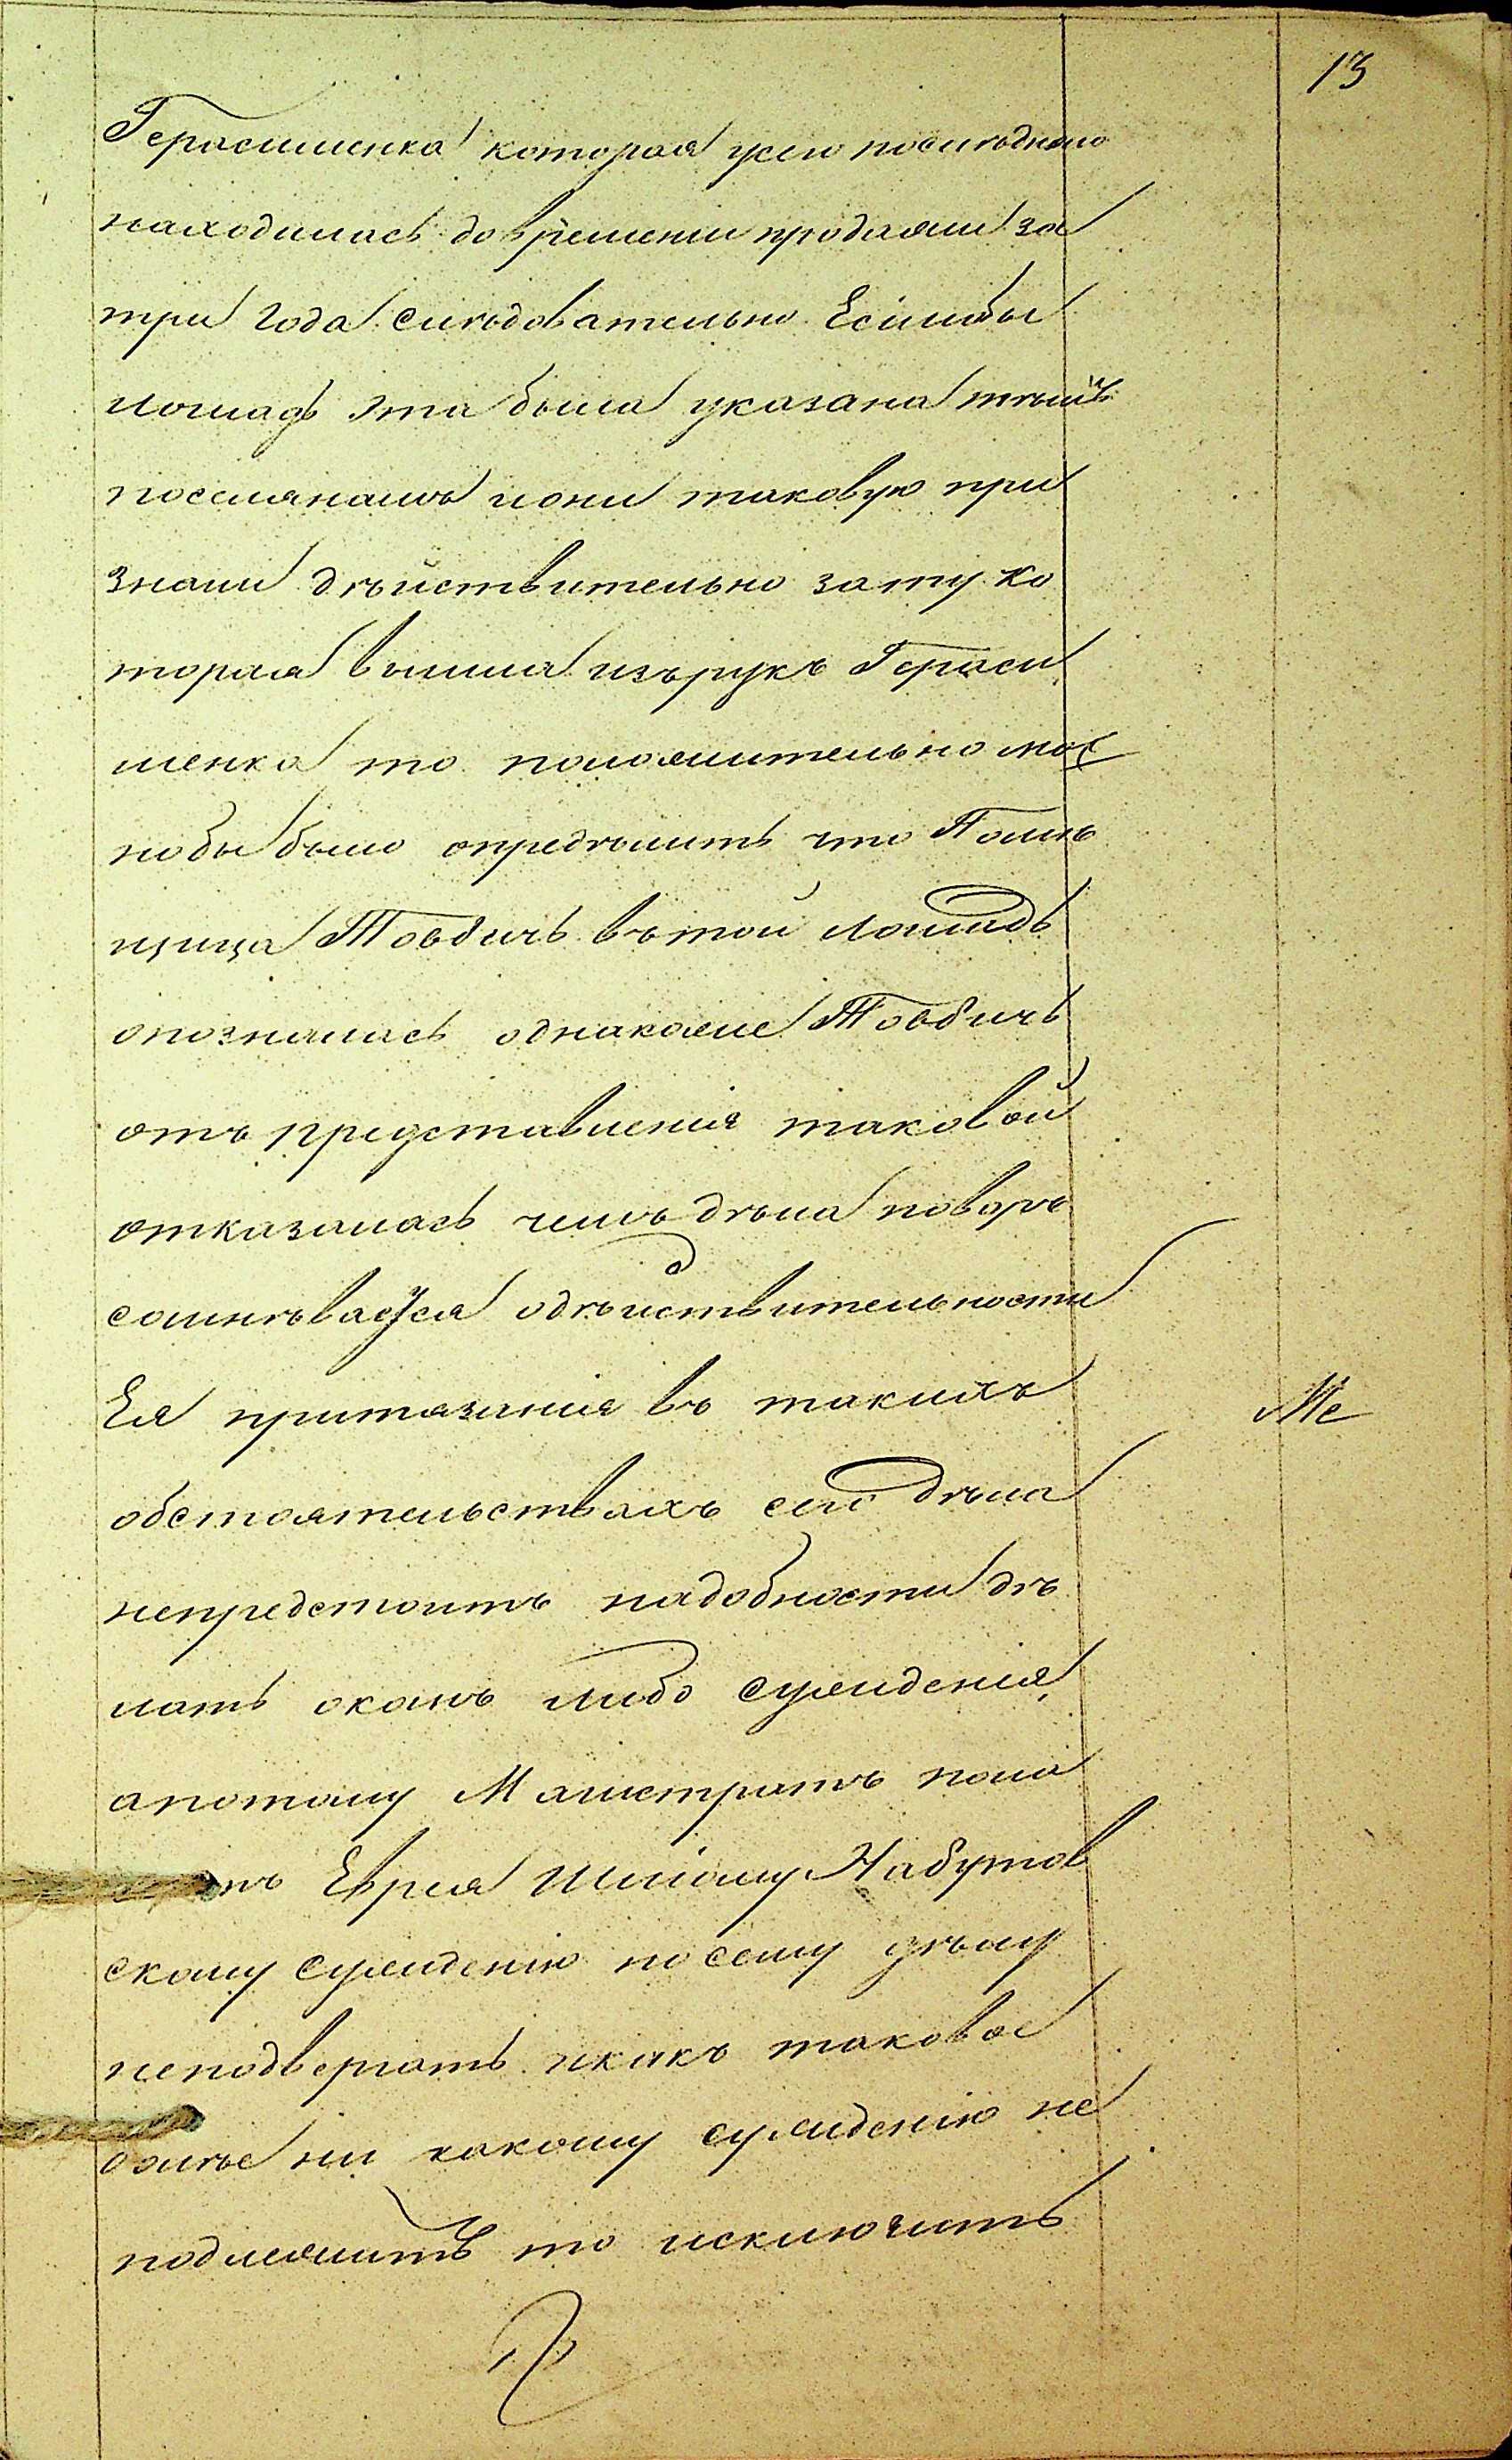 13
Герасименка которая усего последняго
находилась до времени продажи за
три года следовательно Еслибы
лошадь эта была указана темъ
поселянамъ иони таковую при
знали действительно зату ко
торая вышла изърукъ Гераси
менка то положительно мож
нобы было определить что Помѣ
щица Товбичь вътой лошадѣ
опозналась однакоже Товбичь
отъ представленія таковой
отказалась чемъ дѣла поверг
сомнѣваться одѣйствительности
Ея притязанія въ такихъ
обстоятельствахъ сего дѣла
непредстоитъ надобности дѣ
лать окомъ либо сужденія,
апотому Магистратъ пола
Еврея Шлiому Набутов
скому сужденію по сему дѣлу
неподвергать икакъ таковое
болѣе ни какому сужденію не
подлежитъ то исключить
Ме